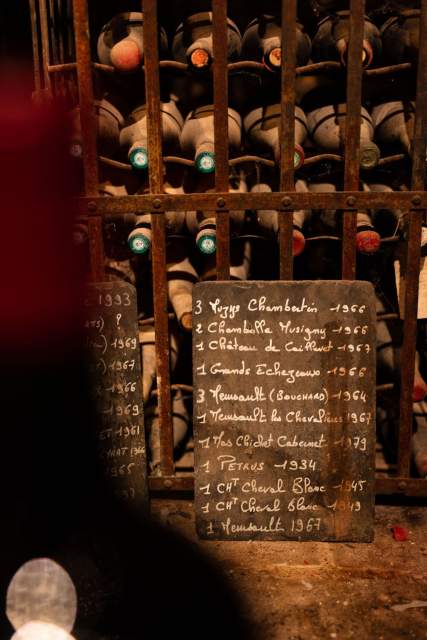 E 1993
?
1969
1967
1966
1969
ET 1961
1966
1965
3 Muzys Chambertin - 1966
2 Chambolle Musigny - 1966
1 Château de Caillavet - 1967
1 Grands Echezeaux - 1966
3 Meursault (BOUCHARD) - 1964
1 Meursault les Chevalières 1967
1 Mas Chichet Cabernet - 1979
1 PETRUS - 1934
1 CHT Cheval Blanc - 1945
1 CHT Cheval Blanc - 1949
1 Meursault 1967